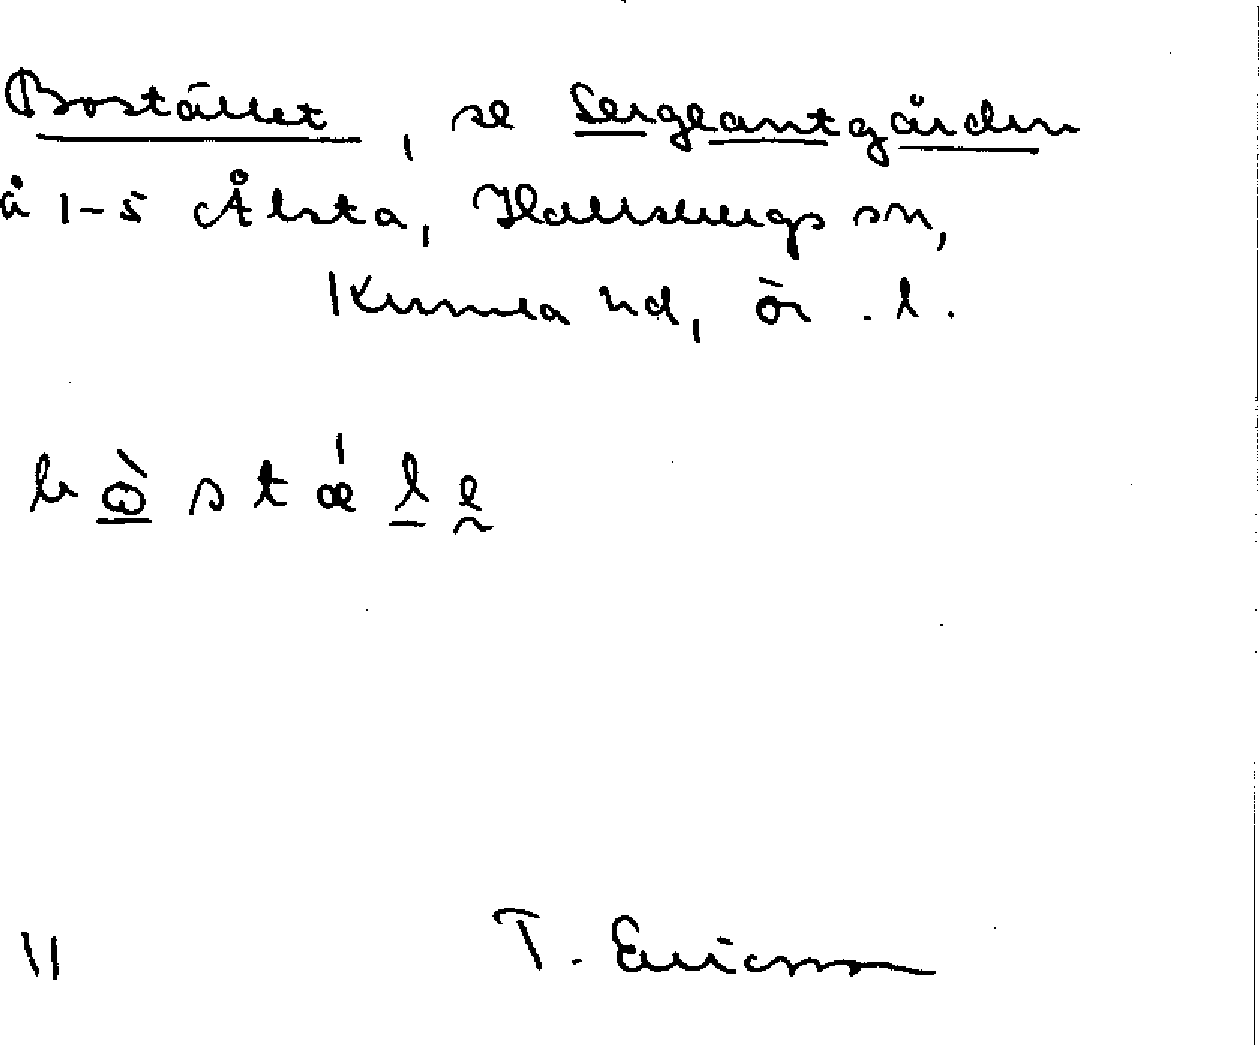 Bostället, se Sergeantgården
å 1-5 Ålsta, Hallsbergs sn,
Kumla hd, ör. l.
bɷ̀stǽle
11 T. Ericsson